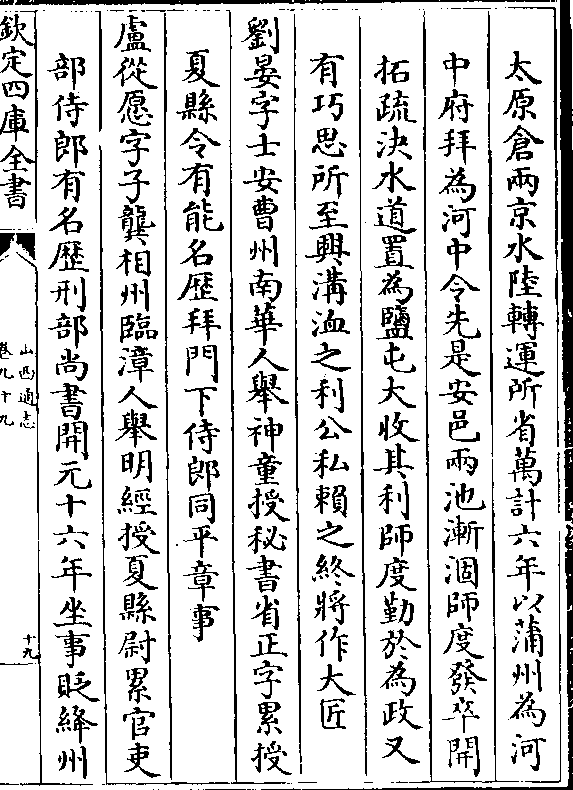 太原倉兩京水陸轉運所省萬計六年以蒲州為河
中府拜為河中令先是安邑兩池漸涸師度發卒開
拓疏決水道置為鹽屯大收其利師度勤於為政又
有巧思所至興溝洫之利公私賴之終將作大匠
劉晏字士安曹州南華人舉神童授秘書省正字累授
夏縣令有能名歷拜門下侍郎同平章事
盧從愿字子龔相州臨漳人舉明經授夏縣尉累官吏
部侍郎有名歷刑部尚書開元十六年坐事貶絳州
欽定四庫全書
山西通志
卷九十九
十九